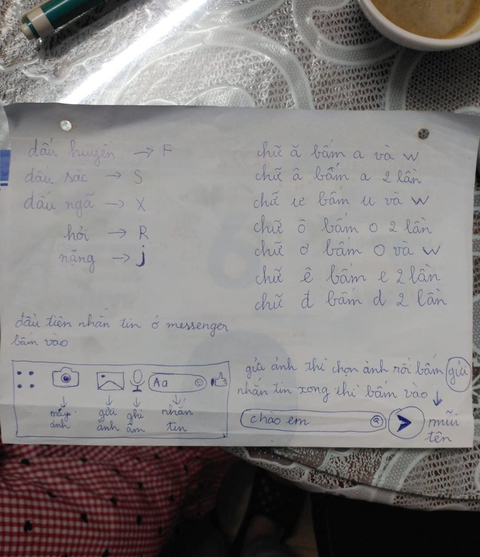 dấu huyền → F
dấu sắc → S
dấu ngã → X
hỏi → R
nặng → j
chữ ă bấm a và w
chữ â bấm a 2 lần
chữ ư bấm u và w
chữ ô bấm o 2 lần
chữ ơ bấm o và w
chữ ê bấm e 2 lần
chữ đ bấm d 2 lần
đầu tiên nhắn tin ở messenger
bấm vào
Aa
gửi ảnh
ghi âm
nhắn tin
gửi ảnh thì chọn ảnh rồi bấm gửi
nhắn tin xong thì bấm vào ↓
chào em
mũi tên